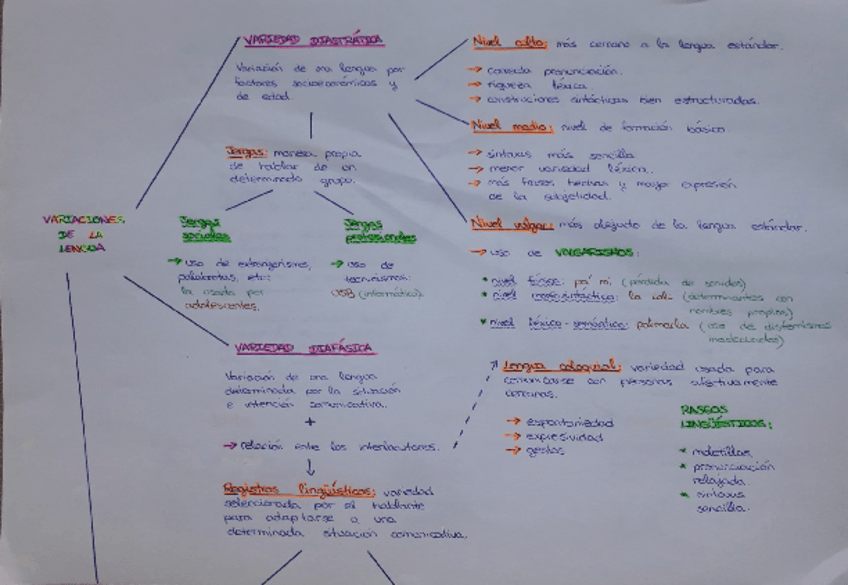 VARIACIONES
DE LA
LENGUA
VARIEDAD DIASTRÁTICA
Variación de una lengua por
factores socioeconómicos y
de edad.
Jergas: manera propia
de hablar de un
determinado grupo.
Jergas
sociales
→ uso de extranjerismos,
palabrotas, etc.:
la usada por
adolescentes.
Jergas
profesionales
→ uso de
tecnicismos:
USB (informática).
Nivel culto: más cercano a la lengua estándar.
→ correcta pronunciación.
→ riqueza léxica.
→ construcciones sintácticas bien estructuradas.
Nivel medio: nivel de formación básico.
→ sintaxis más sencilla
→ menor variedad léxica.
→ más frases hechas y mayor expresión
de la subjetividad.
Nivel vulgar: más alejado de la lengua estándar.
→ uso de VULGARISMOS:
* nivel fónico: pa' mi (pérdida de sonidos)
* nivel morfosintáctico: la Loli (determinantes con
nombres propios)
* nivel léxico-semántico: palmarla (uso de disfemismos
inadecuados)
VARIEDAD DIAFÁSICA
Variación de una lengua
determinada por la situación
e intención comunicativa.
+
→ relación entre los interlocutores.
↓
Registros lingüísticos: variedad
seleccionada por el hablante
para adaptarse a una
determinada situación comunicativa.
Lengua coloquial: variedad usada para
comunicarse con personas afectivamente
cercanas.
→ espontaneidad
→ expresividad
→ gestos
RASGOS
LINGÜÍSTICOS:
* muletillas
* pronunciación
relajada.
* sintaxis
sencilla.